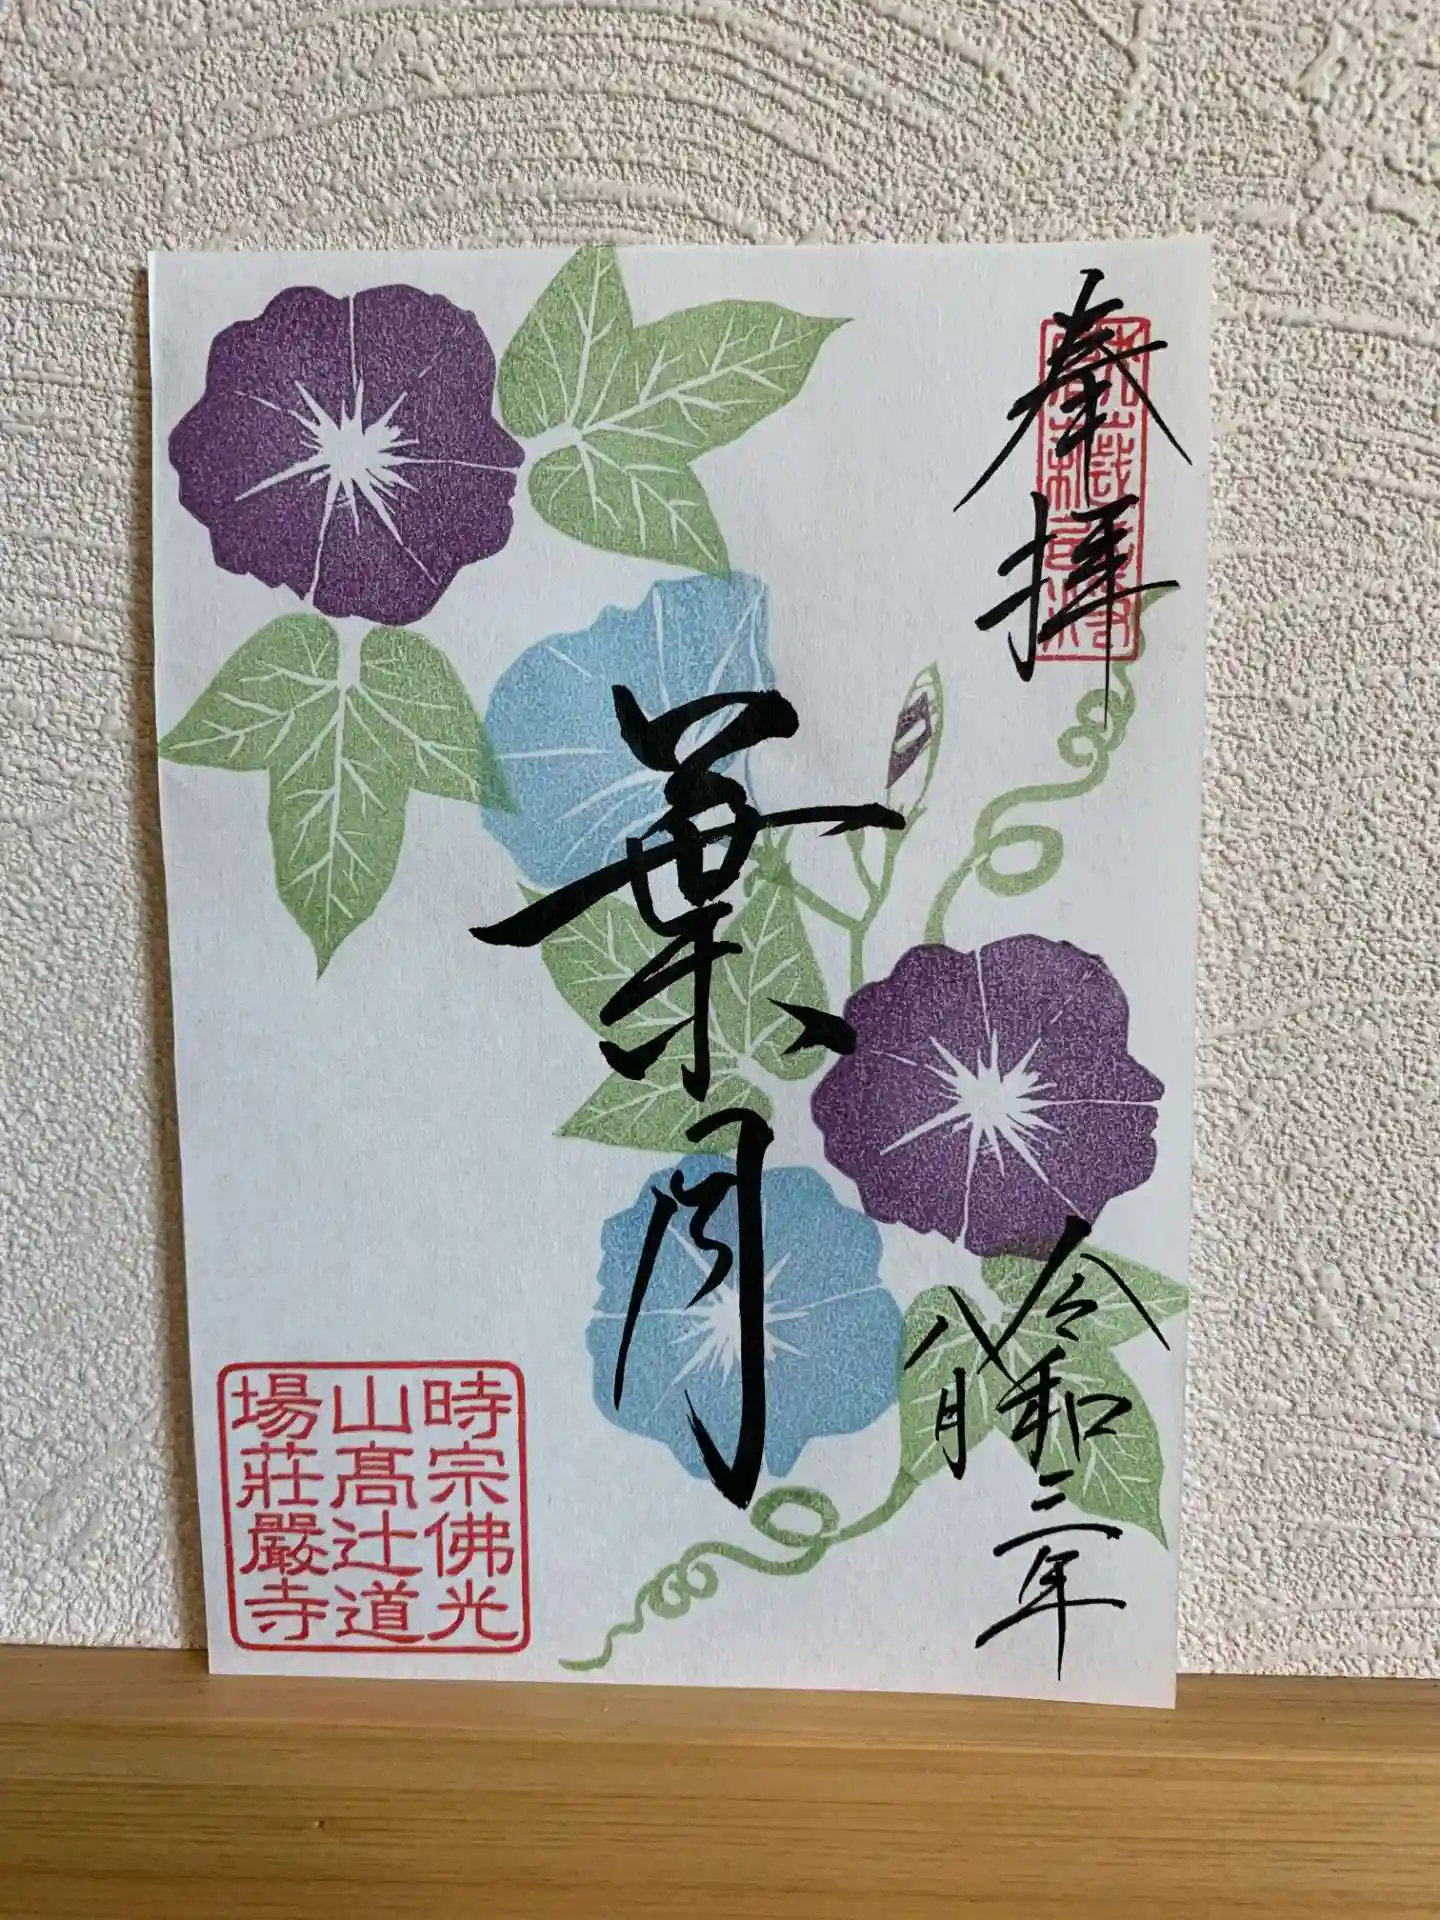 奉拝
葉月
令和二年
八月
時宗佛光
山高辻道
場荘嚴寺